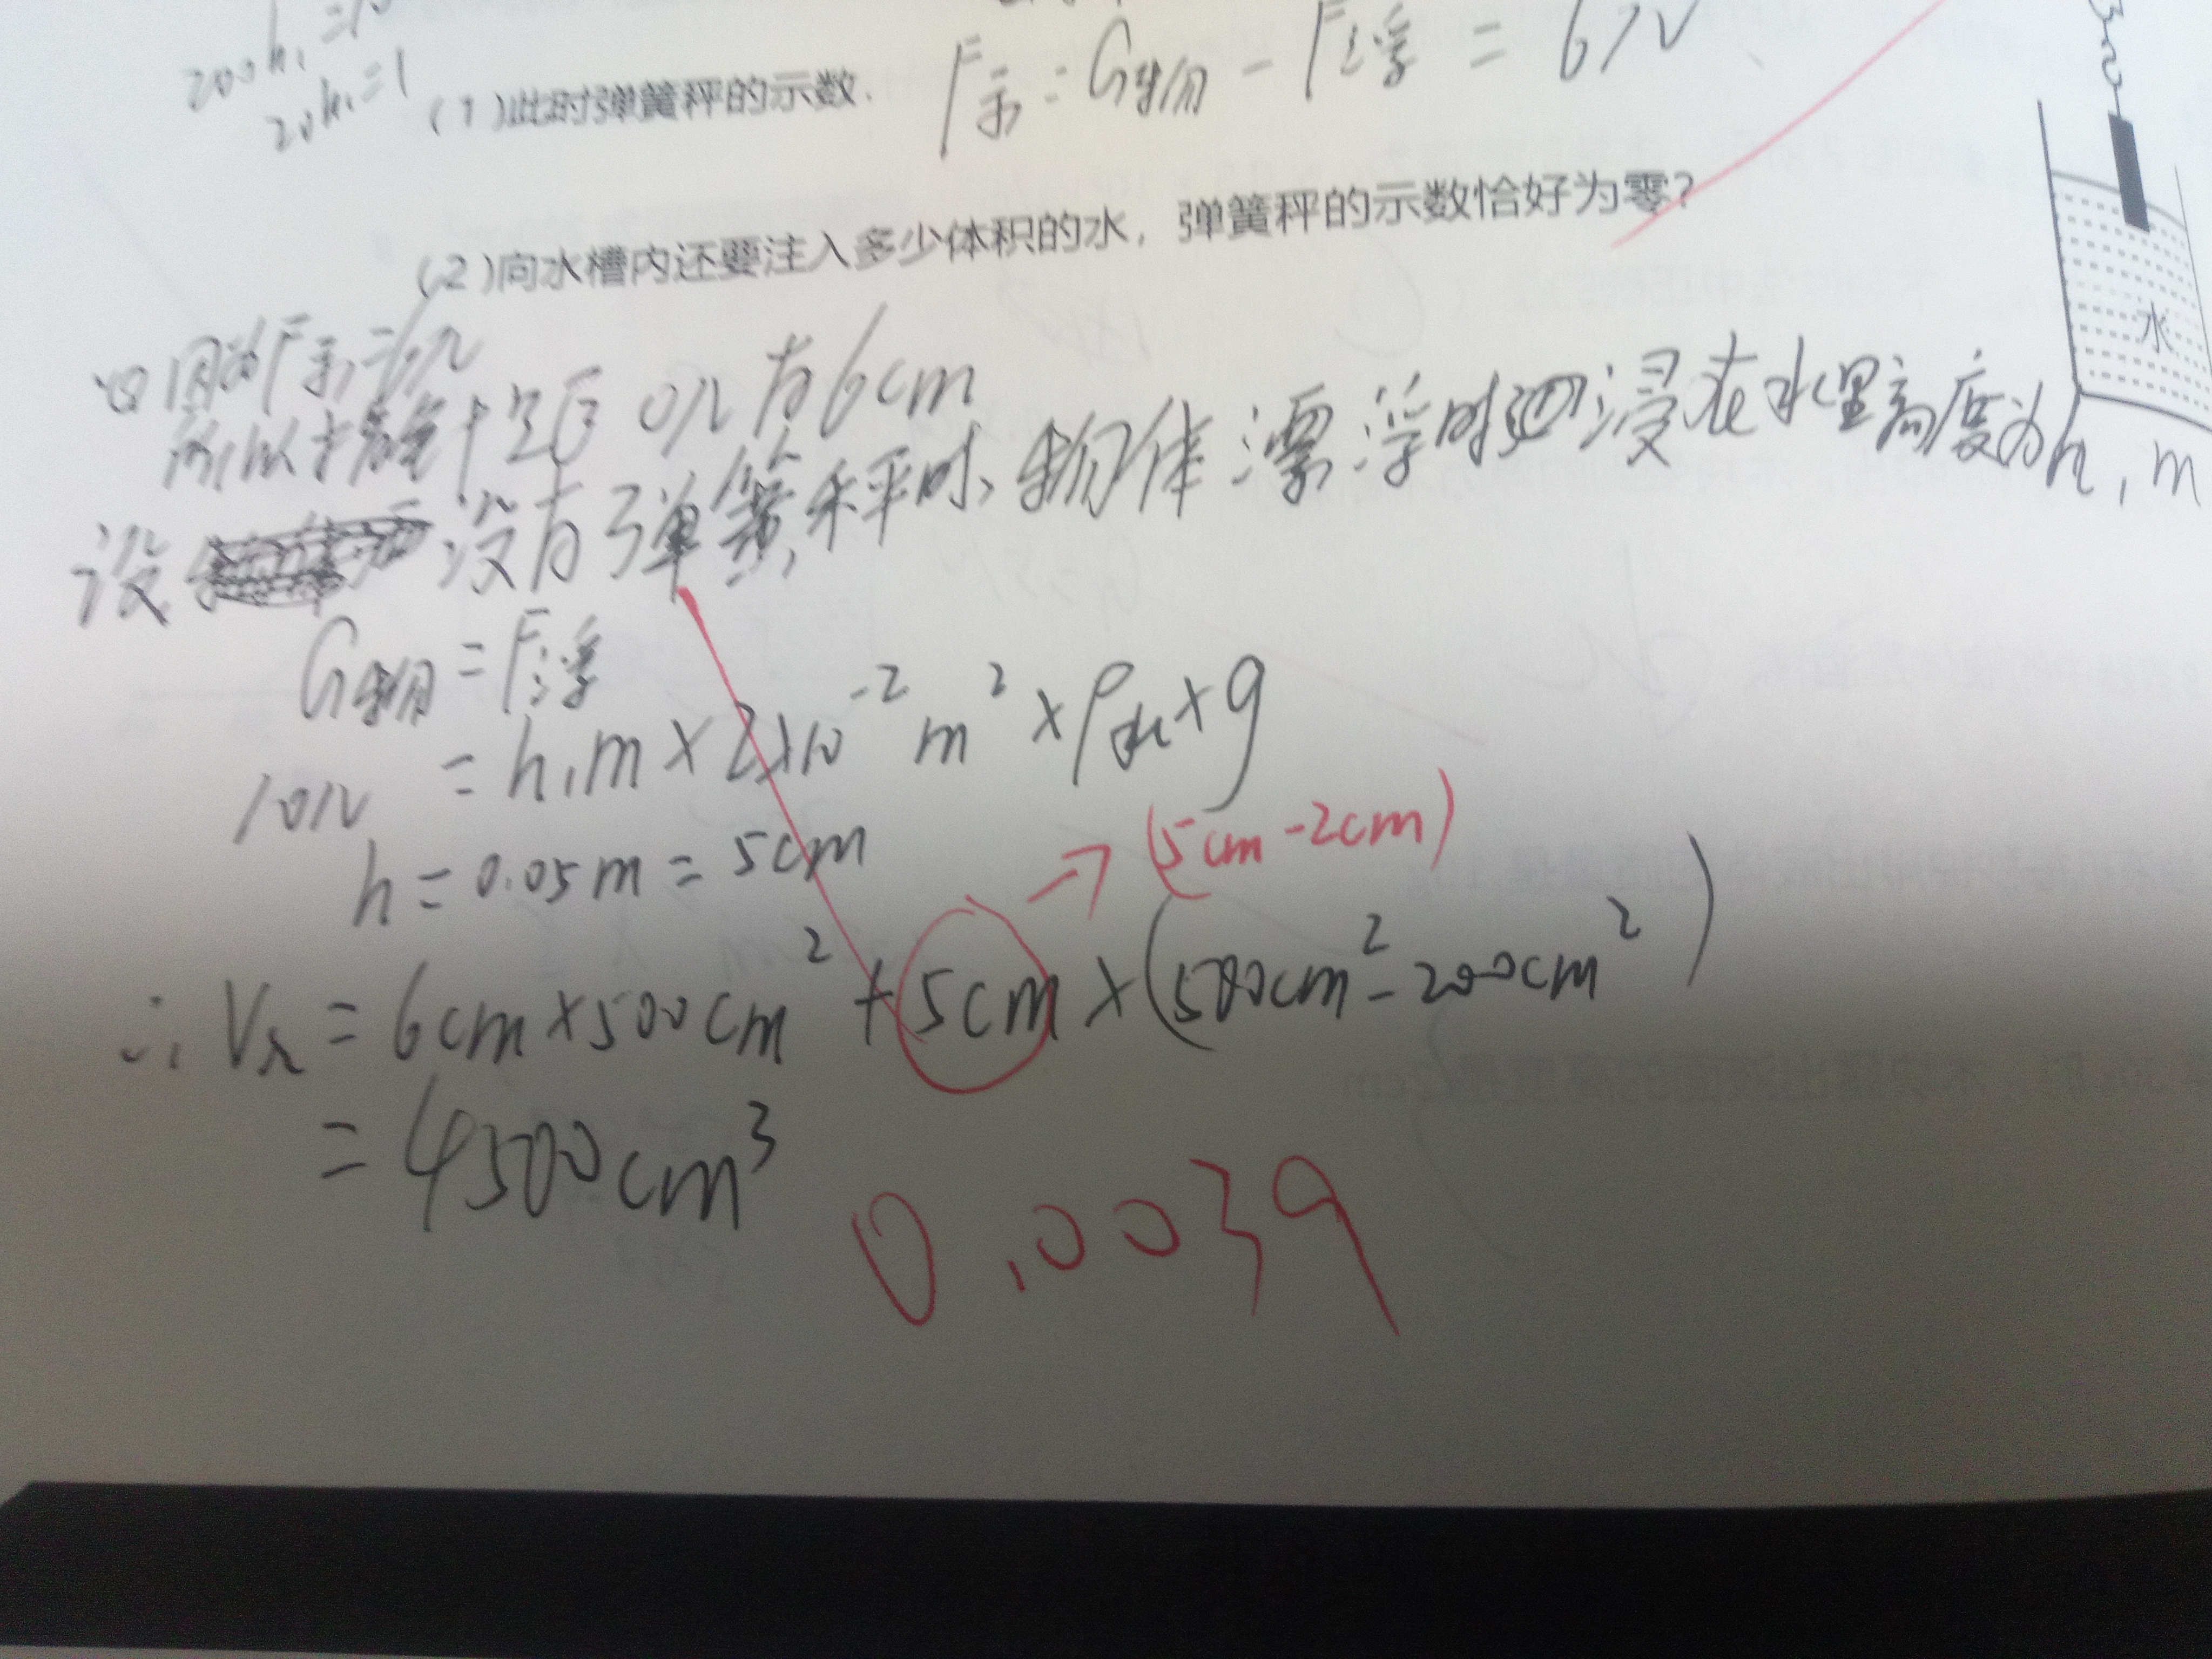 200h₁=10
20h₁=1
(1)此时弹簧秤的示数. F示=G物-F浮=6N
(2)向水槽内还要注入多少体积的水，弹簧秤的示数恰好为零？
水
因为F示=6N
所以 0N 有6cm
设 没有弹簧秤时、物体漂浮时 浸在水里高度为h₁m
G物=F浮
10N =h₁m×2×10⁻²m²×ρ水×g
h=0.05m=5cm
→(5cm-2cm)
∴V水=6cm×500cm²+5cm×(500cm²-200cm²)
=4500cm³
0.0039